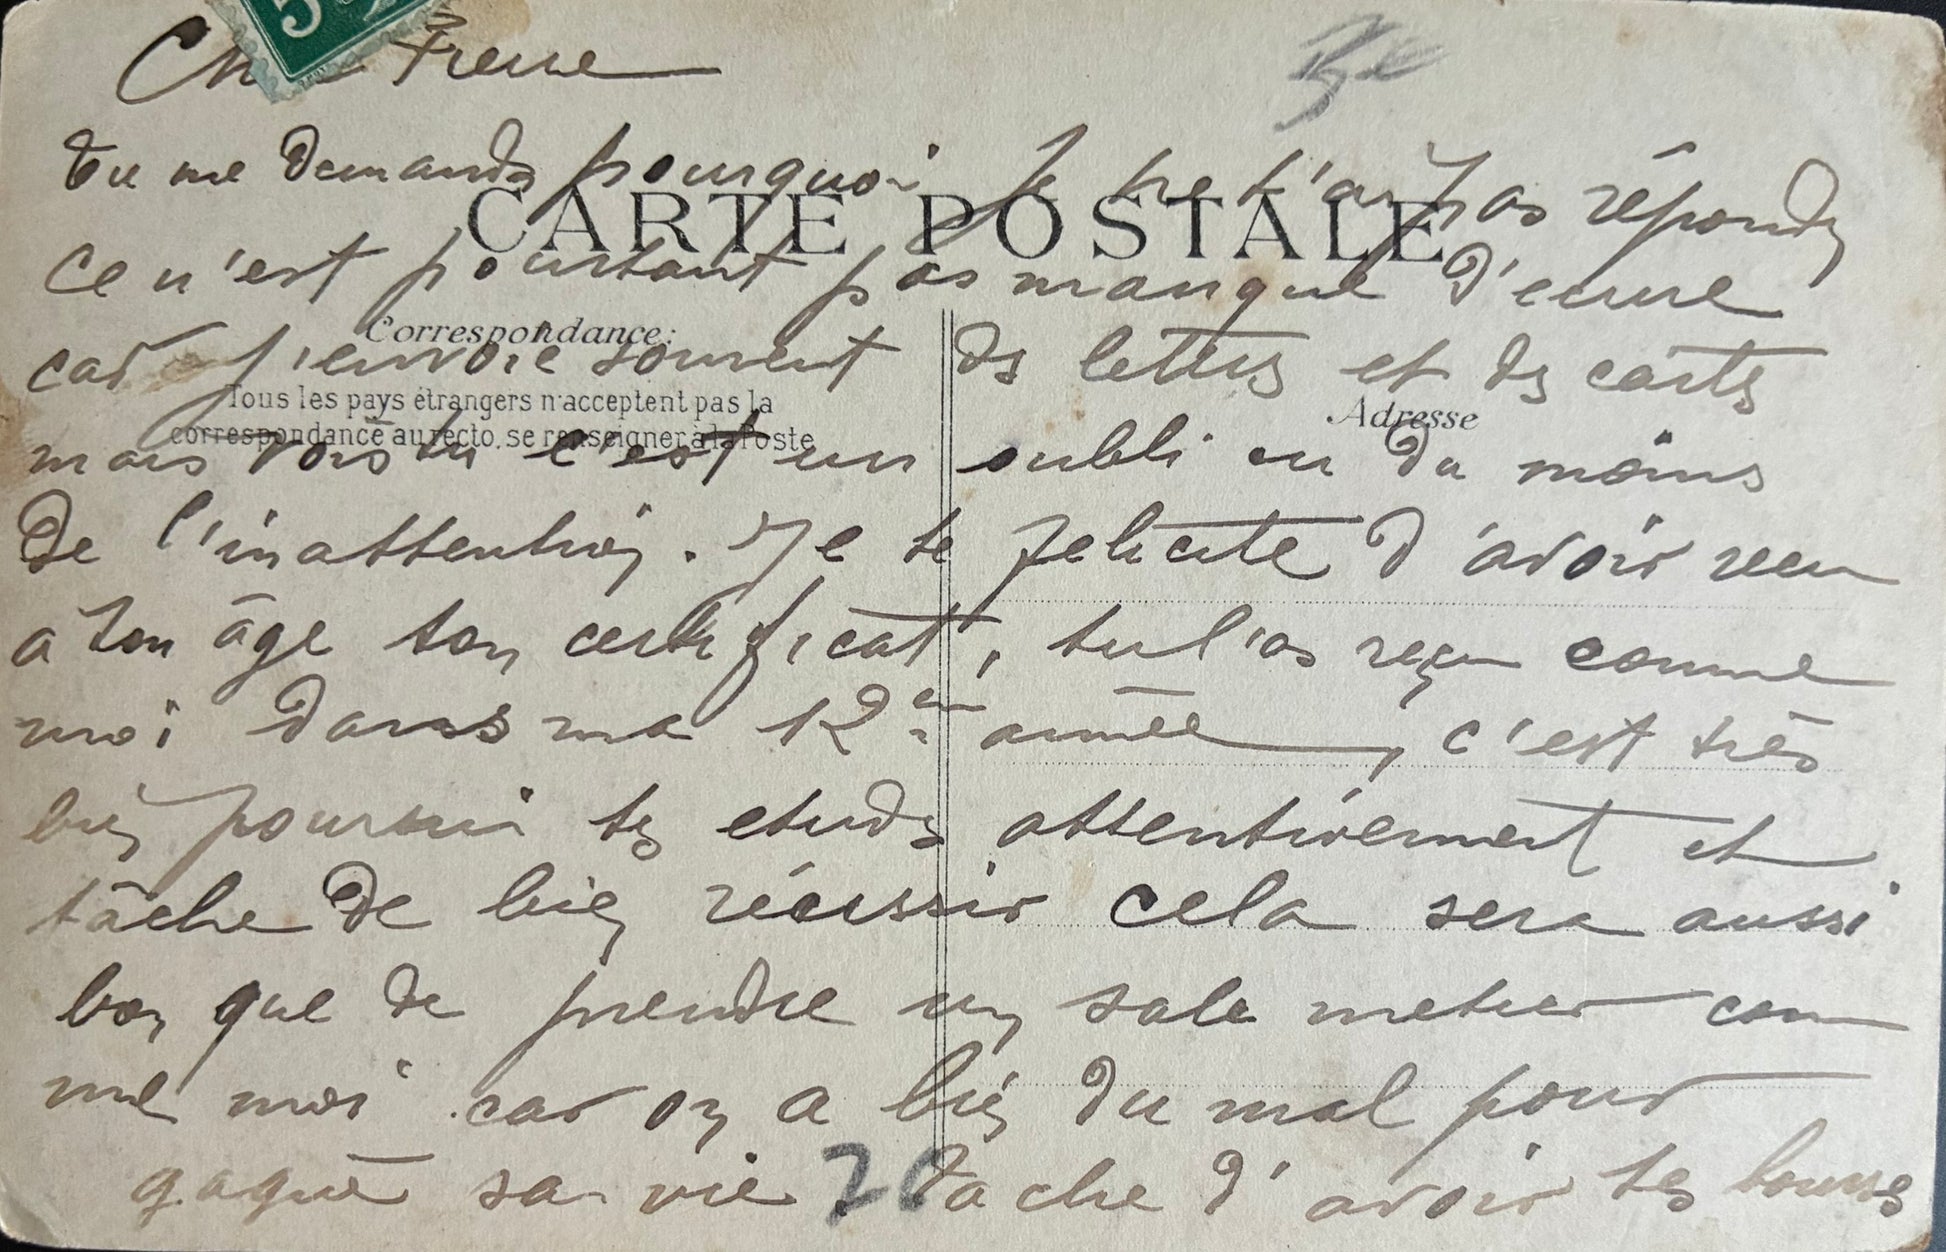 5
Frere
tu me demandes pourquoi Je ne t'ai pas répondu
CARTE POSTALE
ce n'est pourtant pas manque d'ecrire
Correspondance:
car j'envoie souvent des lettres et des cartes
Tous les pays étrangers n'acceptent pas la
Adresse
correspondance au recto, se renseigner à la Poste
mais vois tu c'est un oubli ou du moins
de l'inattention. Je te felicite d'avoir recu
a ton âge ton certificat, tu l'as reçu comme
moi dans ma 12 année, c'est très
bien poursuis tes etudes attentivement et
tâche de bien réussir cela sera aussi
bon que de prendre un sale metier com
me moi car on a bien du mal pour
gagner sa vie 20 tache d'avoir tes bourses